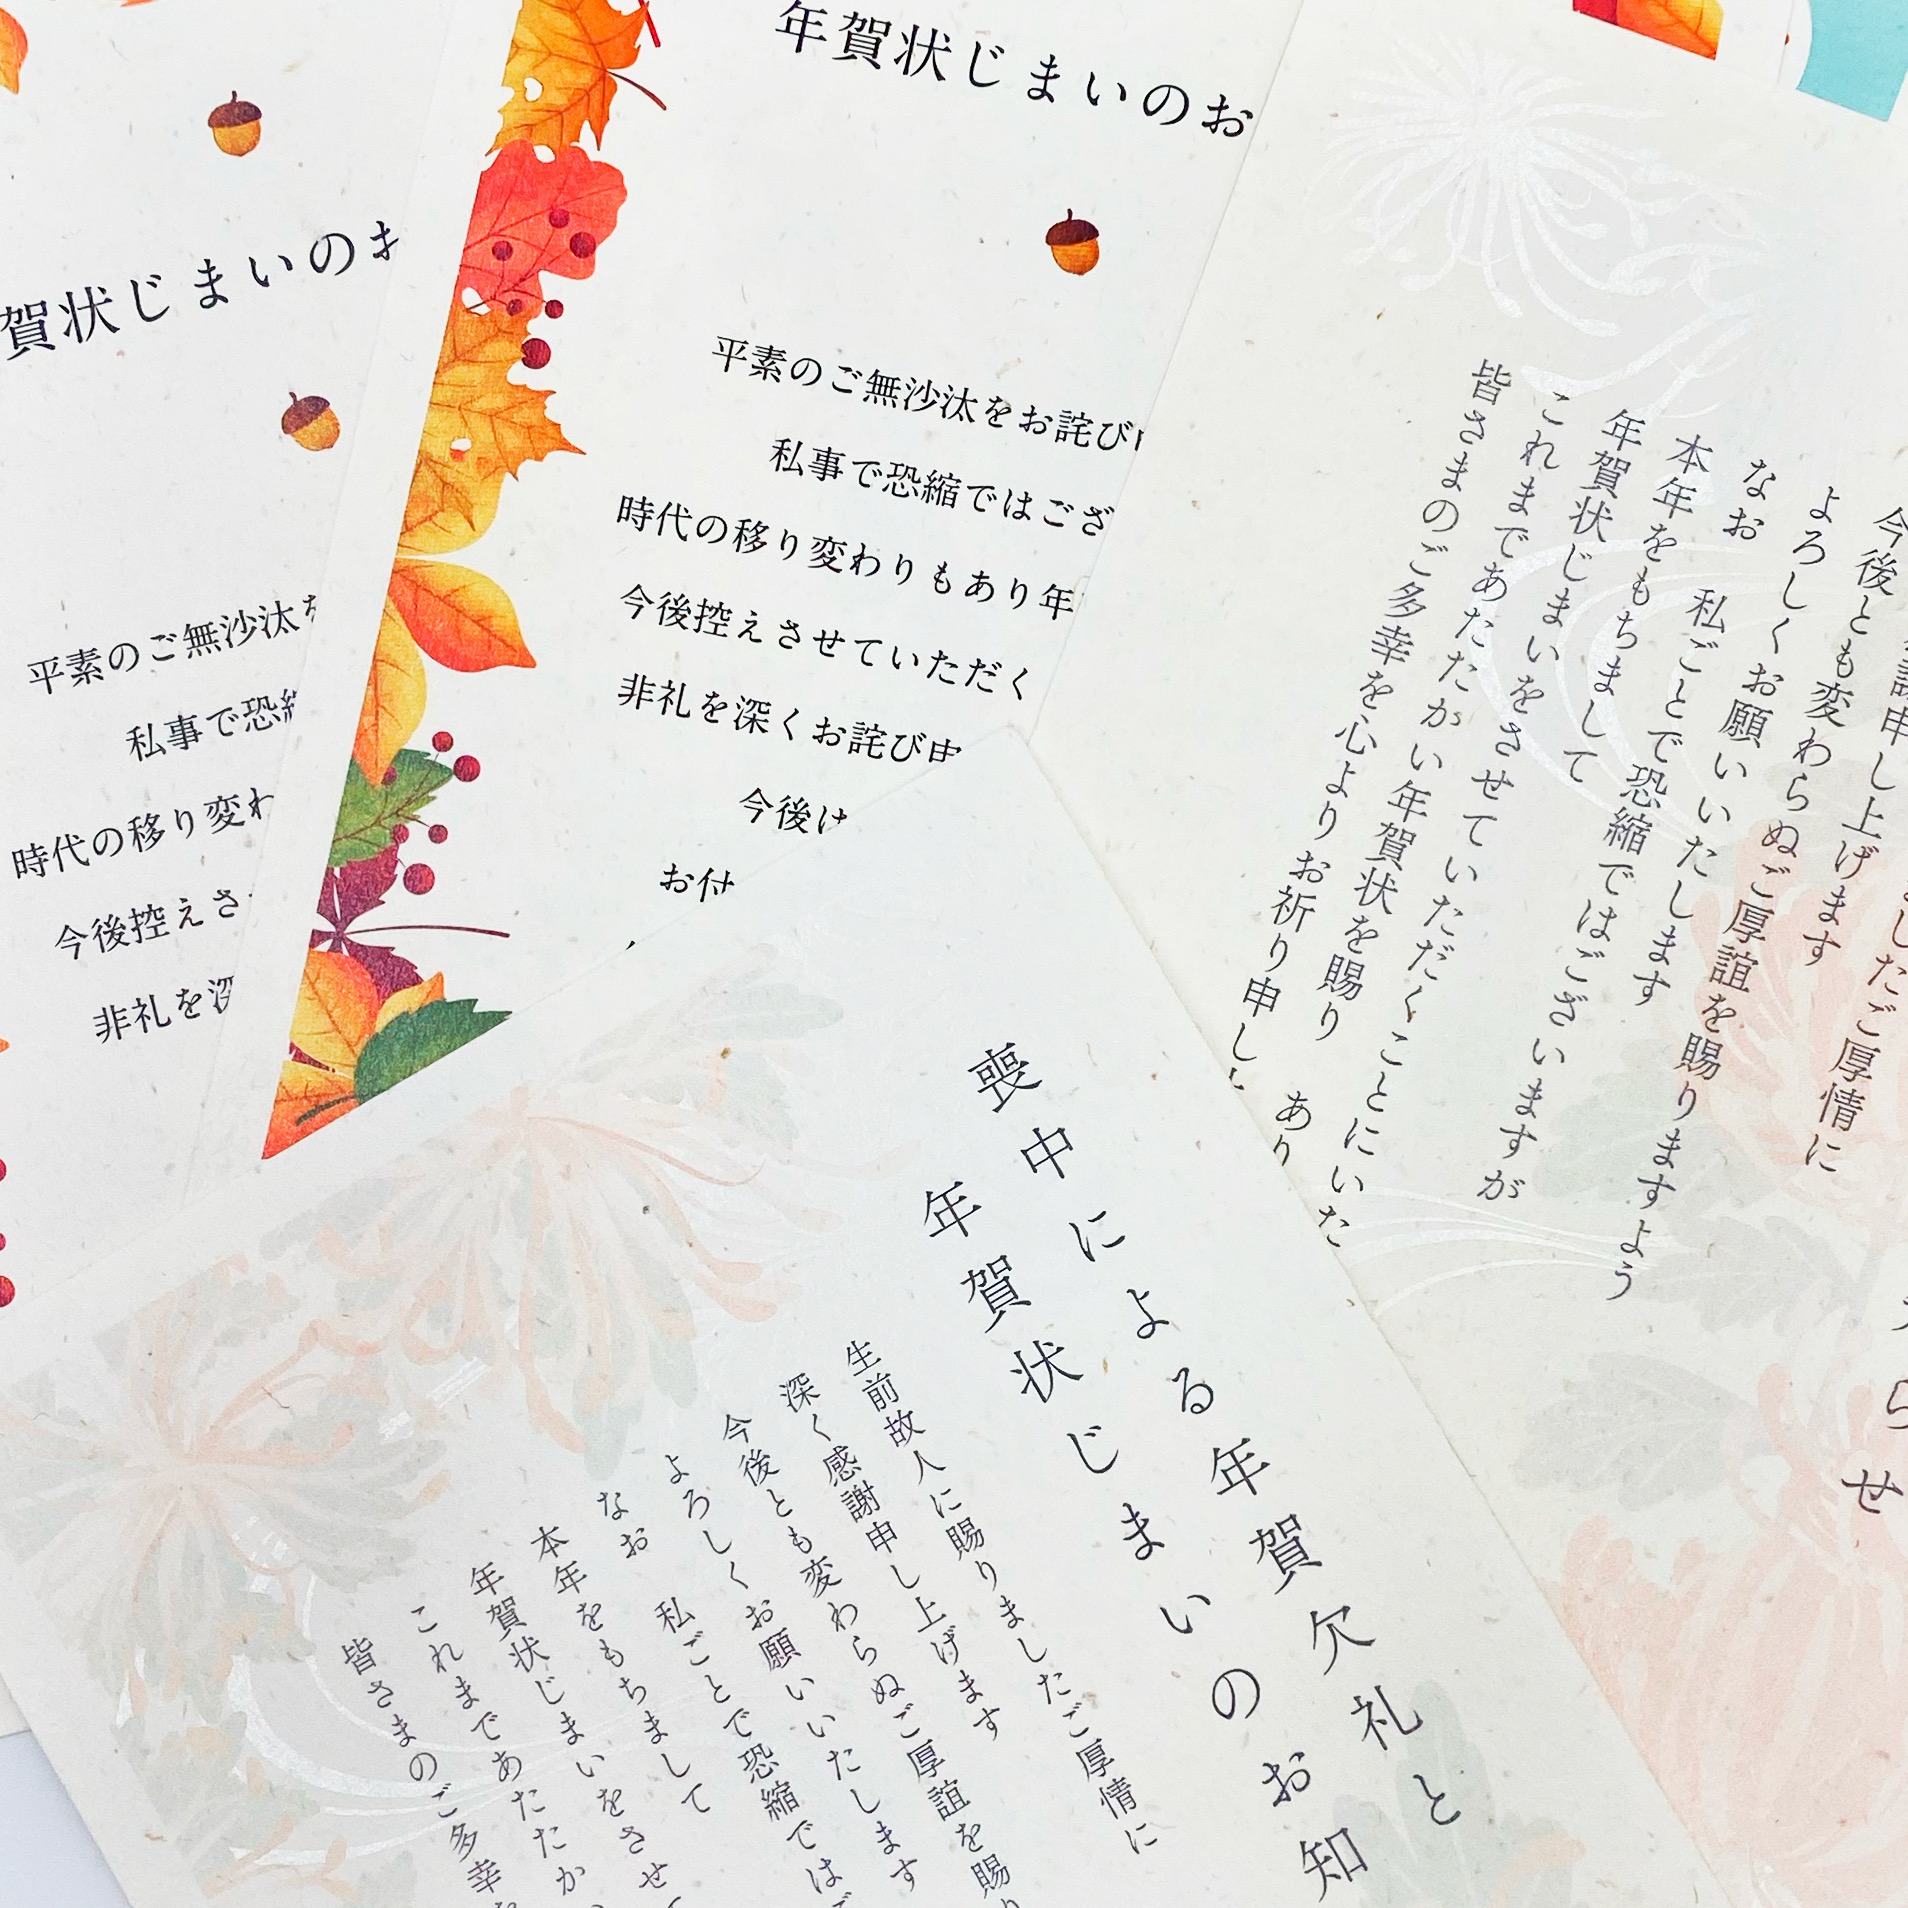 賀状じまいの
平素のご無沙汰
私事で恐
時代の移り変わ
今後控えさ
非礼を
年賀状じまいのお
平素のご無沙汰をお詫び
私事で恐縮ではござ
時代の移り変わりもあり年
今後控えさせていただく
非礼を深くお詫び申
今後は
お付
らせ
ましたご厚情に
申し上げます
今後とも変わらぬご厚誼を賜りますよう
よろしくお願いいたします
なお 私ごとで恐縮ではございますが
本年をもちまして
年賀状じまいをさせていただくことにいた
これまであたたかい年賀状を賜り あり
皆さまのご多幸を心よりお祈り申し
喪中による年賀欠礼と
年賀状じまいのお知
生前故人に賜りましたご厚情に
深く感謝申し上げます
今後とも変わらぬご厚誼を賜り
よろしくお願いいたします
なお 私ごとで恐縮では
本年をもちまして
年賀状じまいをさせ
これまであたたか
皆さまのご多幸